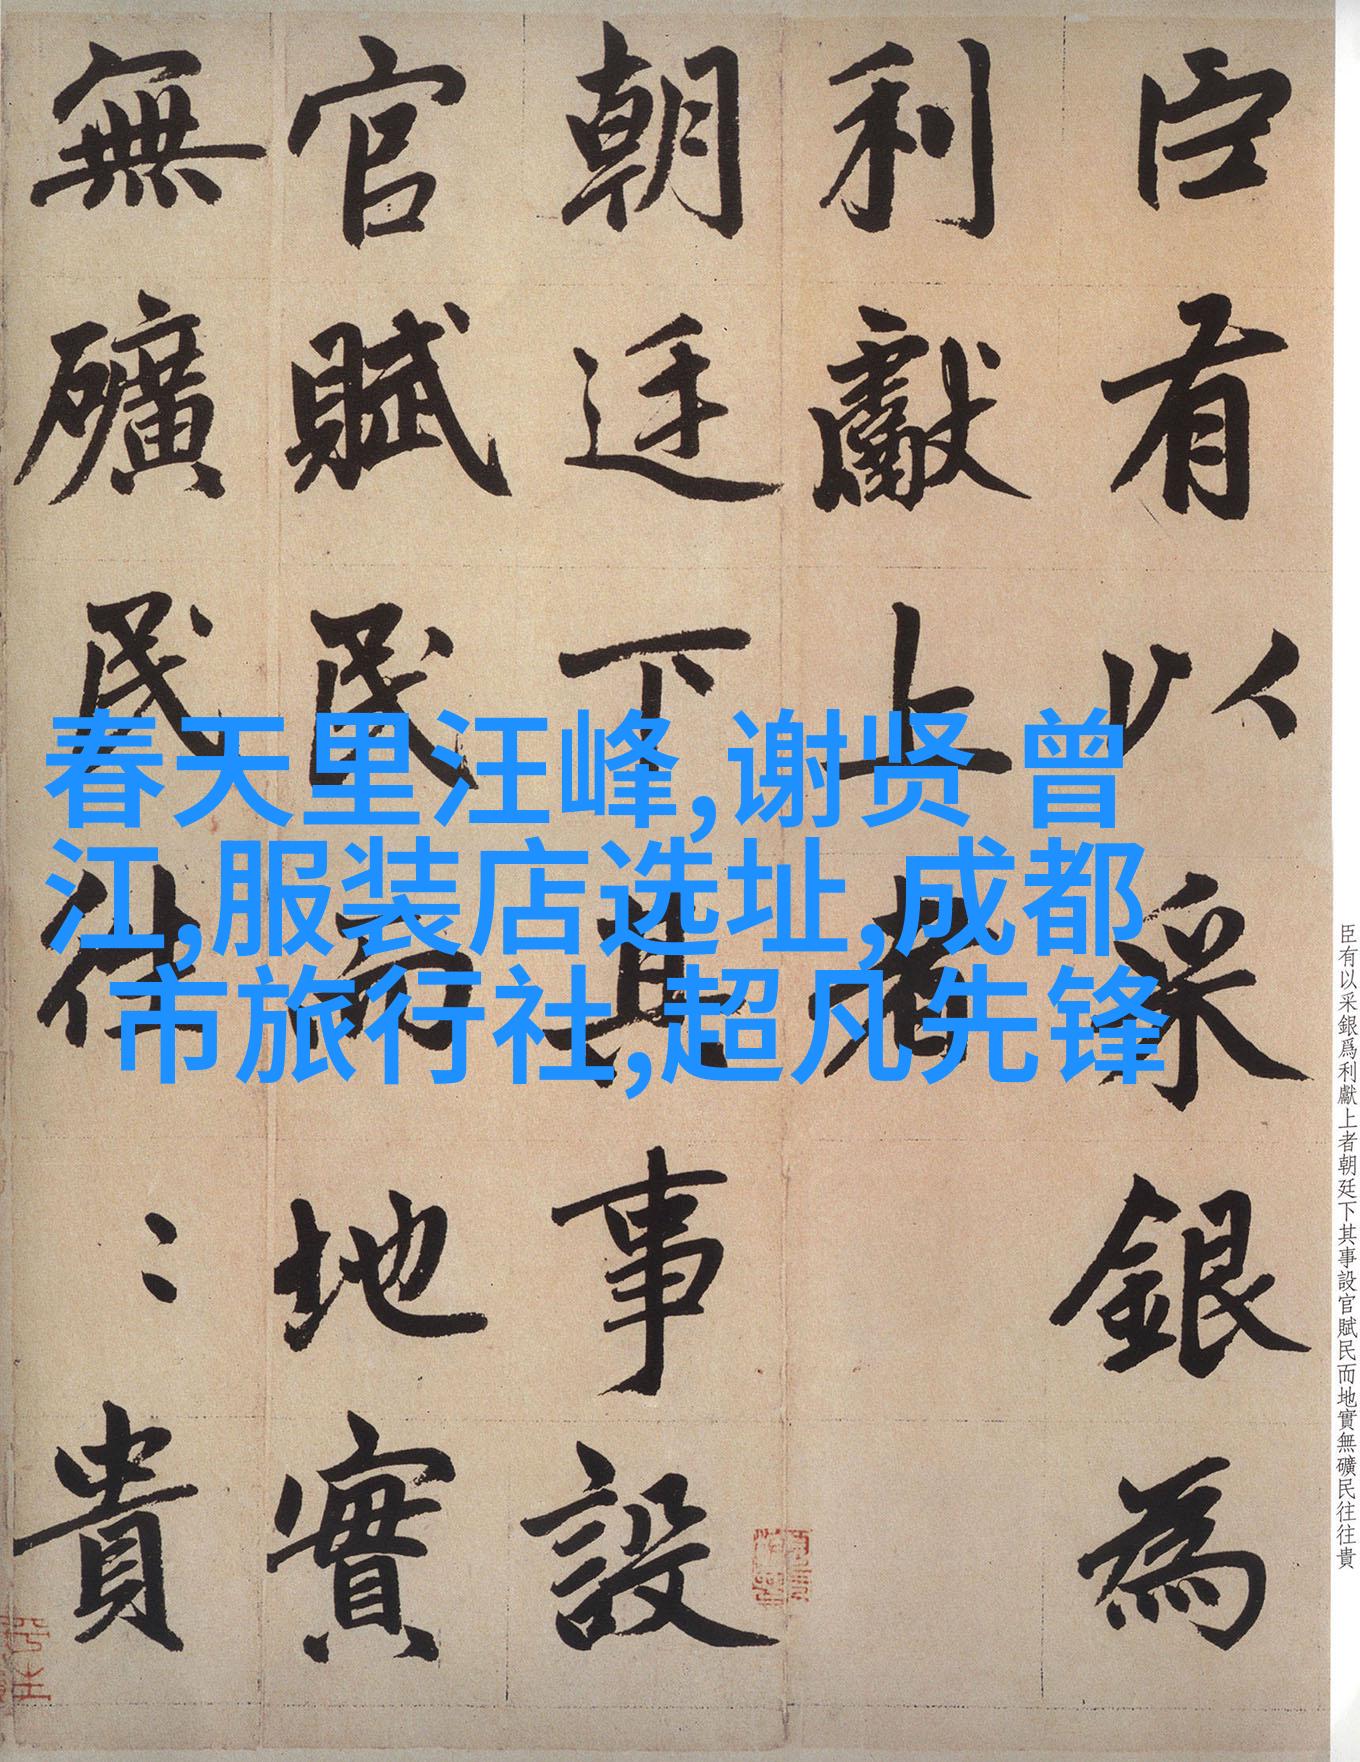 臣有以采銀為
利獻上者
朝廷下其事設
官賦民而地實
無礦民往〻貴
春天里汪峰,谢贤 曾
江,服装店选址,成都
市旅行社,超凡先锋
臣有以采銀爲利獻上者朝廷下其事設官賦民而地實無礦民往往貴